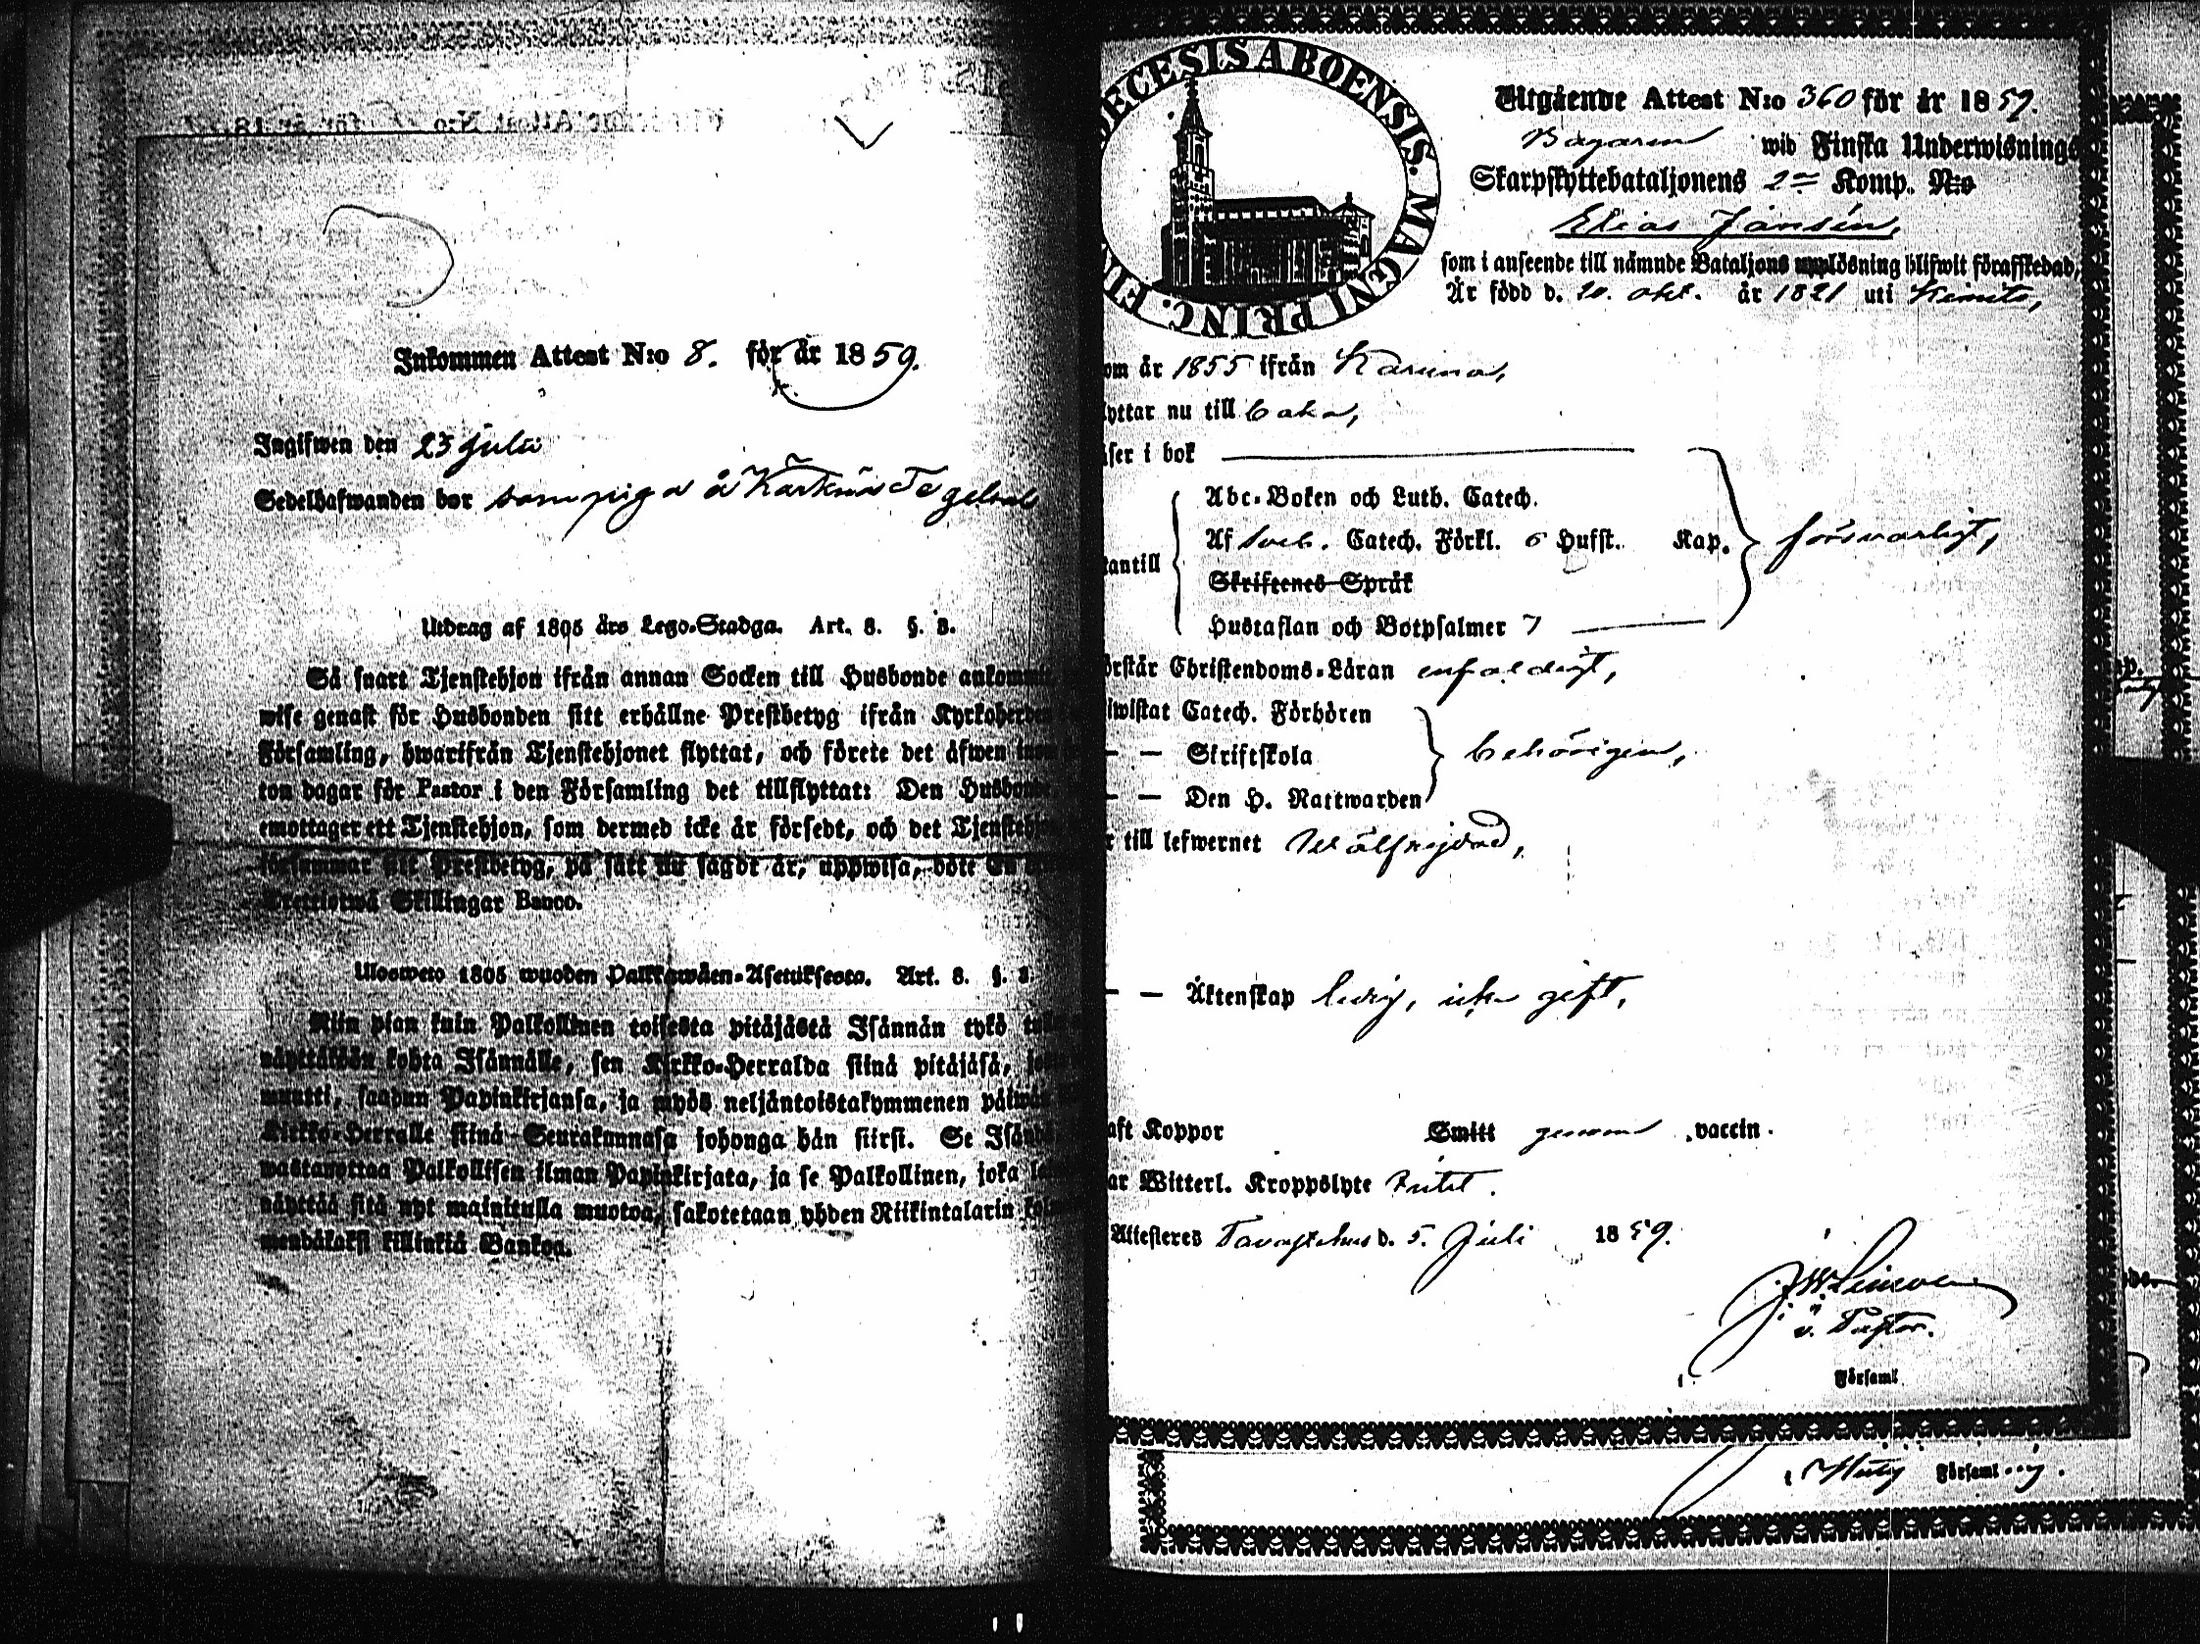 Inkommen Attest N:o 8. för år 1859.
Ingifwen den 23 julii
Sedelhafwanden bor som piga å Kärknäs Tegelbruk
Utdrag af 1805 års Lego-Stadga. Art. 3. §. 3.
Så snart Tjenstehjon ifrån annan Socken till Husbonde
wise genast för Husbonden sitt erhållne Prestbetyg ifrån
Församling, hwarifrån Tjenstehjonet flyttat, och förete det äfwen
ton dagar för Pastor i den Församling det tillflyttat: Den
emottager ett Tjenstehjon, som dermed icke är försedt, och det
försummar sitt Prestbetyg, på sätt nu sagdt är, uppwisa, böte
Trettiotwå Skillingar Banco.
Ulosweto 1805 wuoden Palkkawäen-Asetuksesta. Art. 3. §. 3.
Niin pian kuin Palkollinen toisesta pitäjästä Isännän tykö
näyttäkään kohta Isännälle, sen Kirkko-Herralda siinä pitäjäsä,
muutti, saadun Papinkirjansa, ja myös neljäntoistakymmenen
Kirkko-Herralle siinä Seurakunnasa johonga hän siirsi. Se
wastanottaa Palkollisen ilman Papinkirjata, ja se Palkollinen, joka
näyttää sitä nyt mainitulla muotoa, sakotetaan yhden Riikintalarin
mendäkaksi killinkiä Bankoa.
DECESIS ABOENSIS. MAGNI PRINC.
Utgående Attest N:o 360 för år 1859.
Bagaren wid Finska Underwisnings
Skarpskyttebataljonens 2 Komp. N:o
Elias Jansén,
som i anseende till nämnde Bataljons upplösning blifwit förafskedad,
Är född d. 20. okt. år 1821 uti Kimito,
om år 1855 ifrån Karuna,
yttar nu till baka,
äser i bok
Abc-Boken och Luth. Catech.
Af Sveb. Catech. Förkl. 6 Hufst. Kap. försvarligt,
antill
Skriftenes Språk
Hustaflan och Botpsalmer 7
örstår Christendoms-Läran enfaldigt,
iwistat Catech. Förhören
— — Skriftskola behörigen,
— — Den H. Nattwarden
r till lefwernet Wälfrejdad,
— — Äktenskap ledig, icke gift,
aft Koppor Smitt genom vaccin.
ar Witterl. Kroppslyte
Attesteres Tavastehus d. 5. Juli 1859.
v. Pastor.
Församl.
Församl